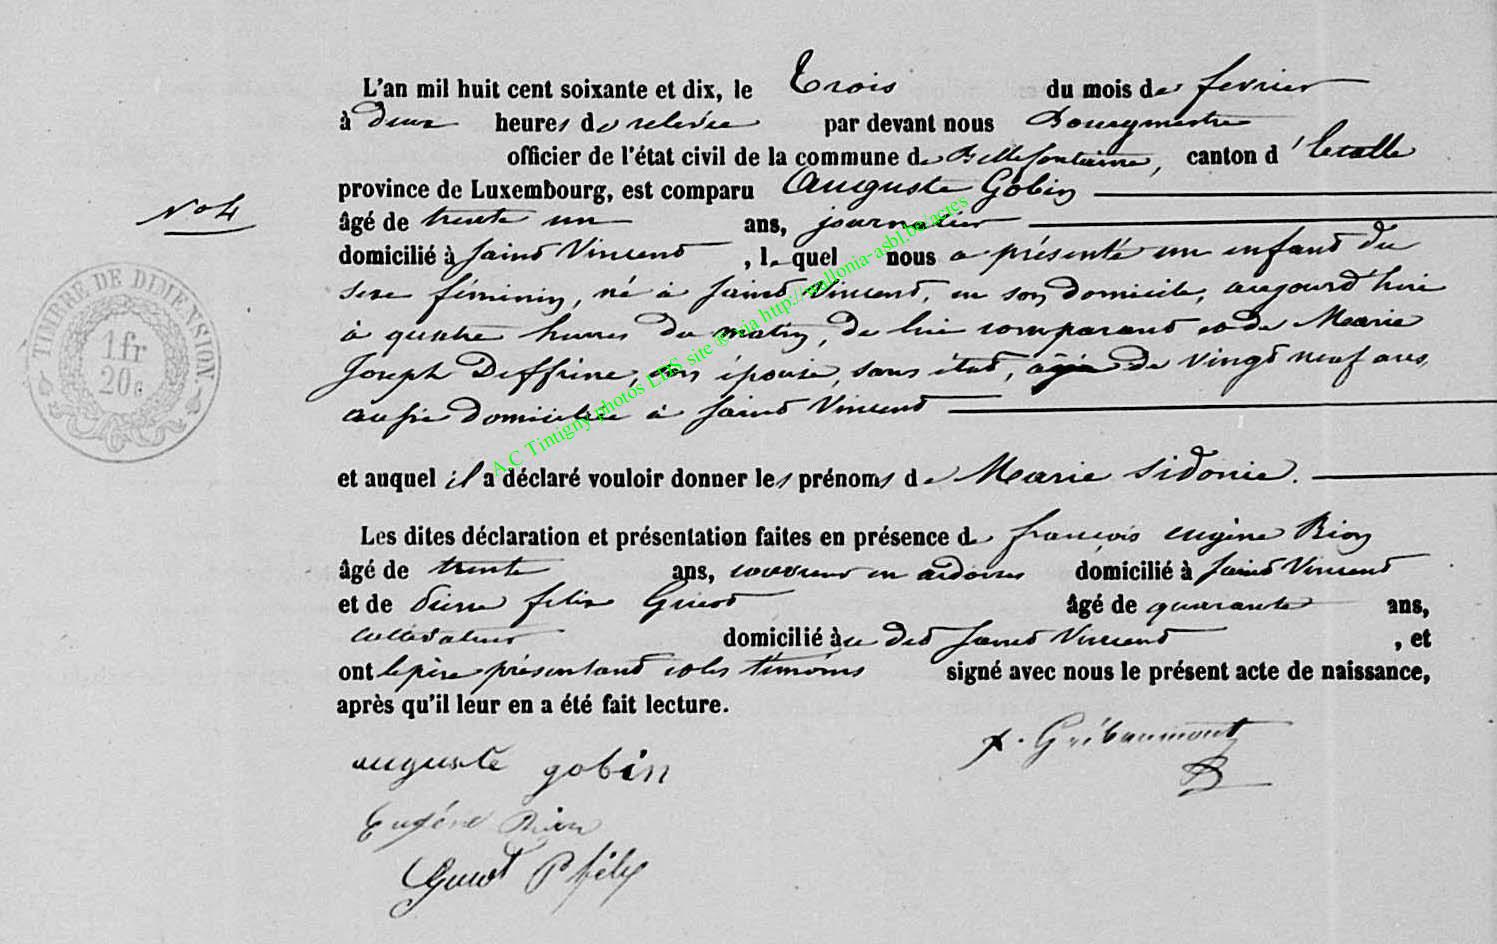 L'an mil huit cent soixante et dix, le Trois du mois de fevrier
à deux heures de relevée par devant nous Bourgmestre
officier de l'état civil de la commune de Bellefontaine, canton d'Etalle
province de Luxembourg, est comparu Auguste Gobin
N° 4
âgé de trente un ans, journalier
domicilié à Saint Vincent, le quel nous a présenté un enfant du
sexe féminin, né à Saint Vincent, en son domicile, aujourd'hui
à quatre heures du matin, de lui comparant et de Marie
Joseph Deffrine, son épouse, sans état, âgée de vingt neuf ans,
aussi domiciliée à Saint Vincent
et auquel il a déclaré vouloir donner les prénoms de Marie Sidonie.
Les dites déclaration et présentation faites en présence de françois eugène Rion
âgé de trente ans, couvreur en ardoises domicilié à Saint Vincent
et de Pierre felix Guiot âgé de quarante ans,
cultivateur domicilié àu dit Saint Vincent, et
ont le père présentant et les témoins signé avec nous le présent acte de naissance,
après qu'il leur en a été fait lecture.
auguste gobin
Eugéne Rion
Guiot P félix
Gribaumont
TIMBRE DE DIMENSION.
1 fr
20 c
A.C Tintigny photos LDS site ® via http://wallonia-asbl.be/actes